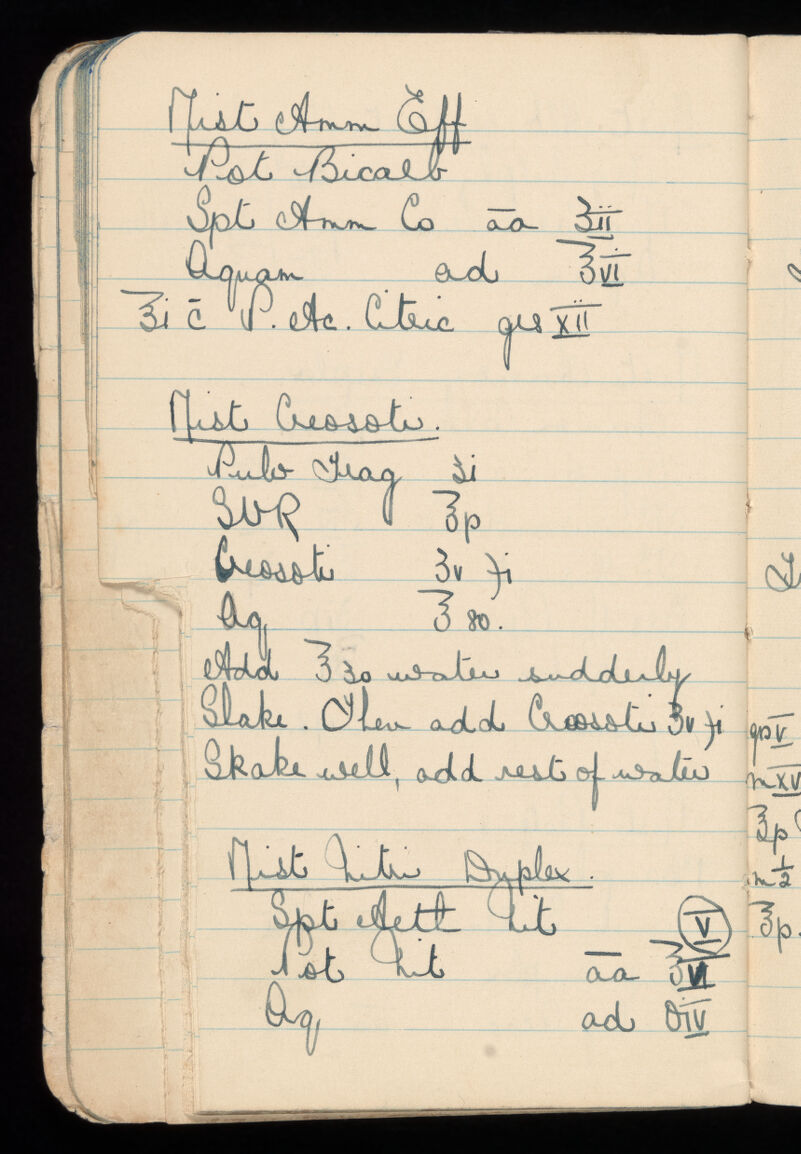 Mist Amm Eff
Pot Bicarb
Spt Amm Co āa ʒii
Aquam ad ℥vi
℥i c̄ P. Ac. Citric grs xii
Mist Creosoti.
Pulv Trag ʒi
SVR ℥p
Creosoti ʒv ʒi
Aq ℥ 80.
Add ℥ 30 water suddenly
Slake. Then add Creosoti ʒv ʒi
Skake well, add rest of water
Mist Nitri Duplex.
Spt Aeth Nit V
Pot Nit āa ℥VI
Aq ad Oiv
grs V
m XV
℥p
m ½
℥p.